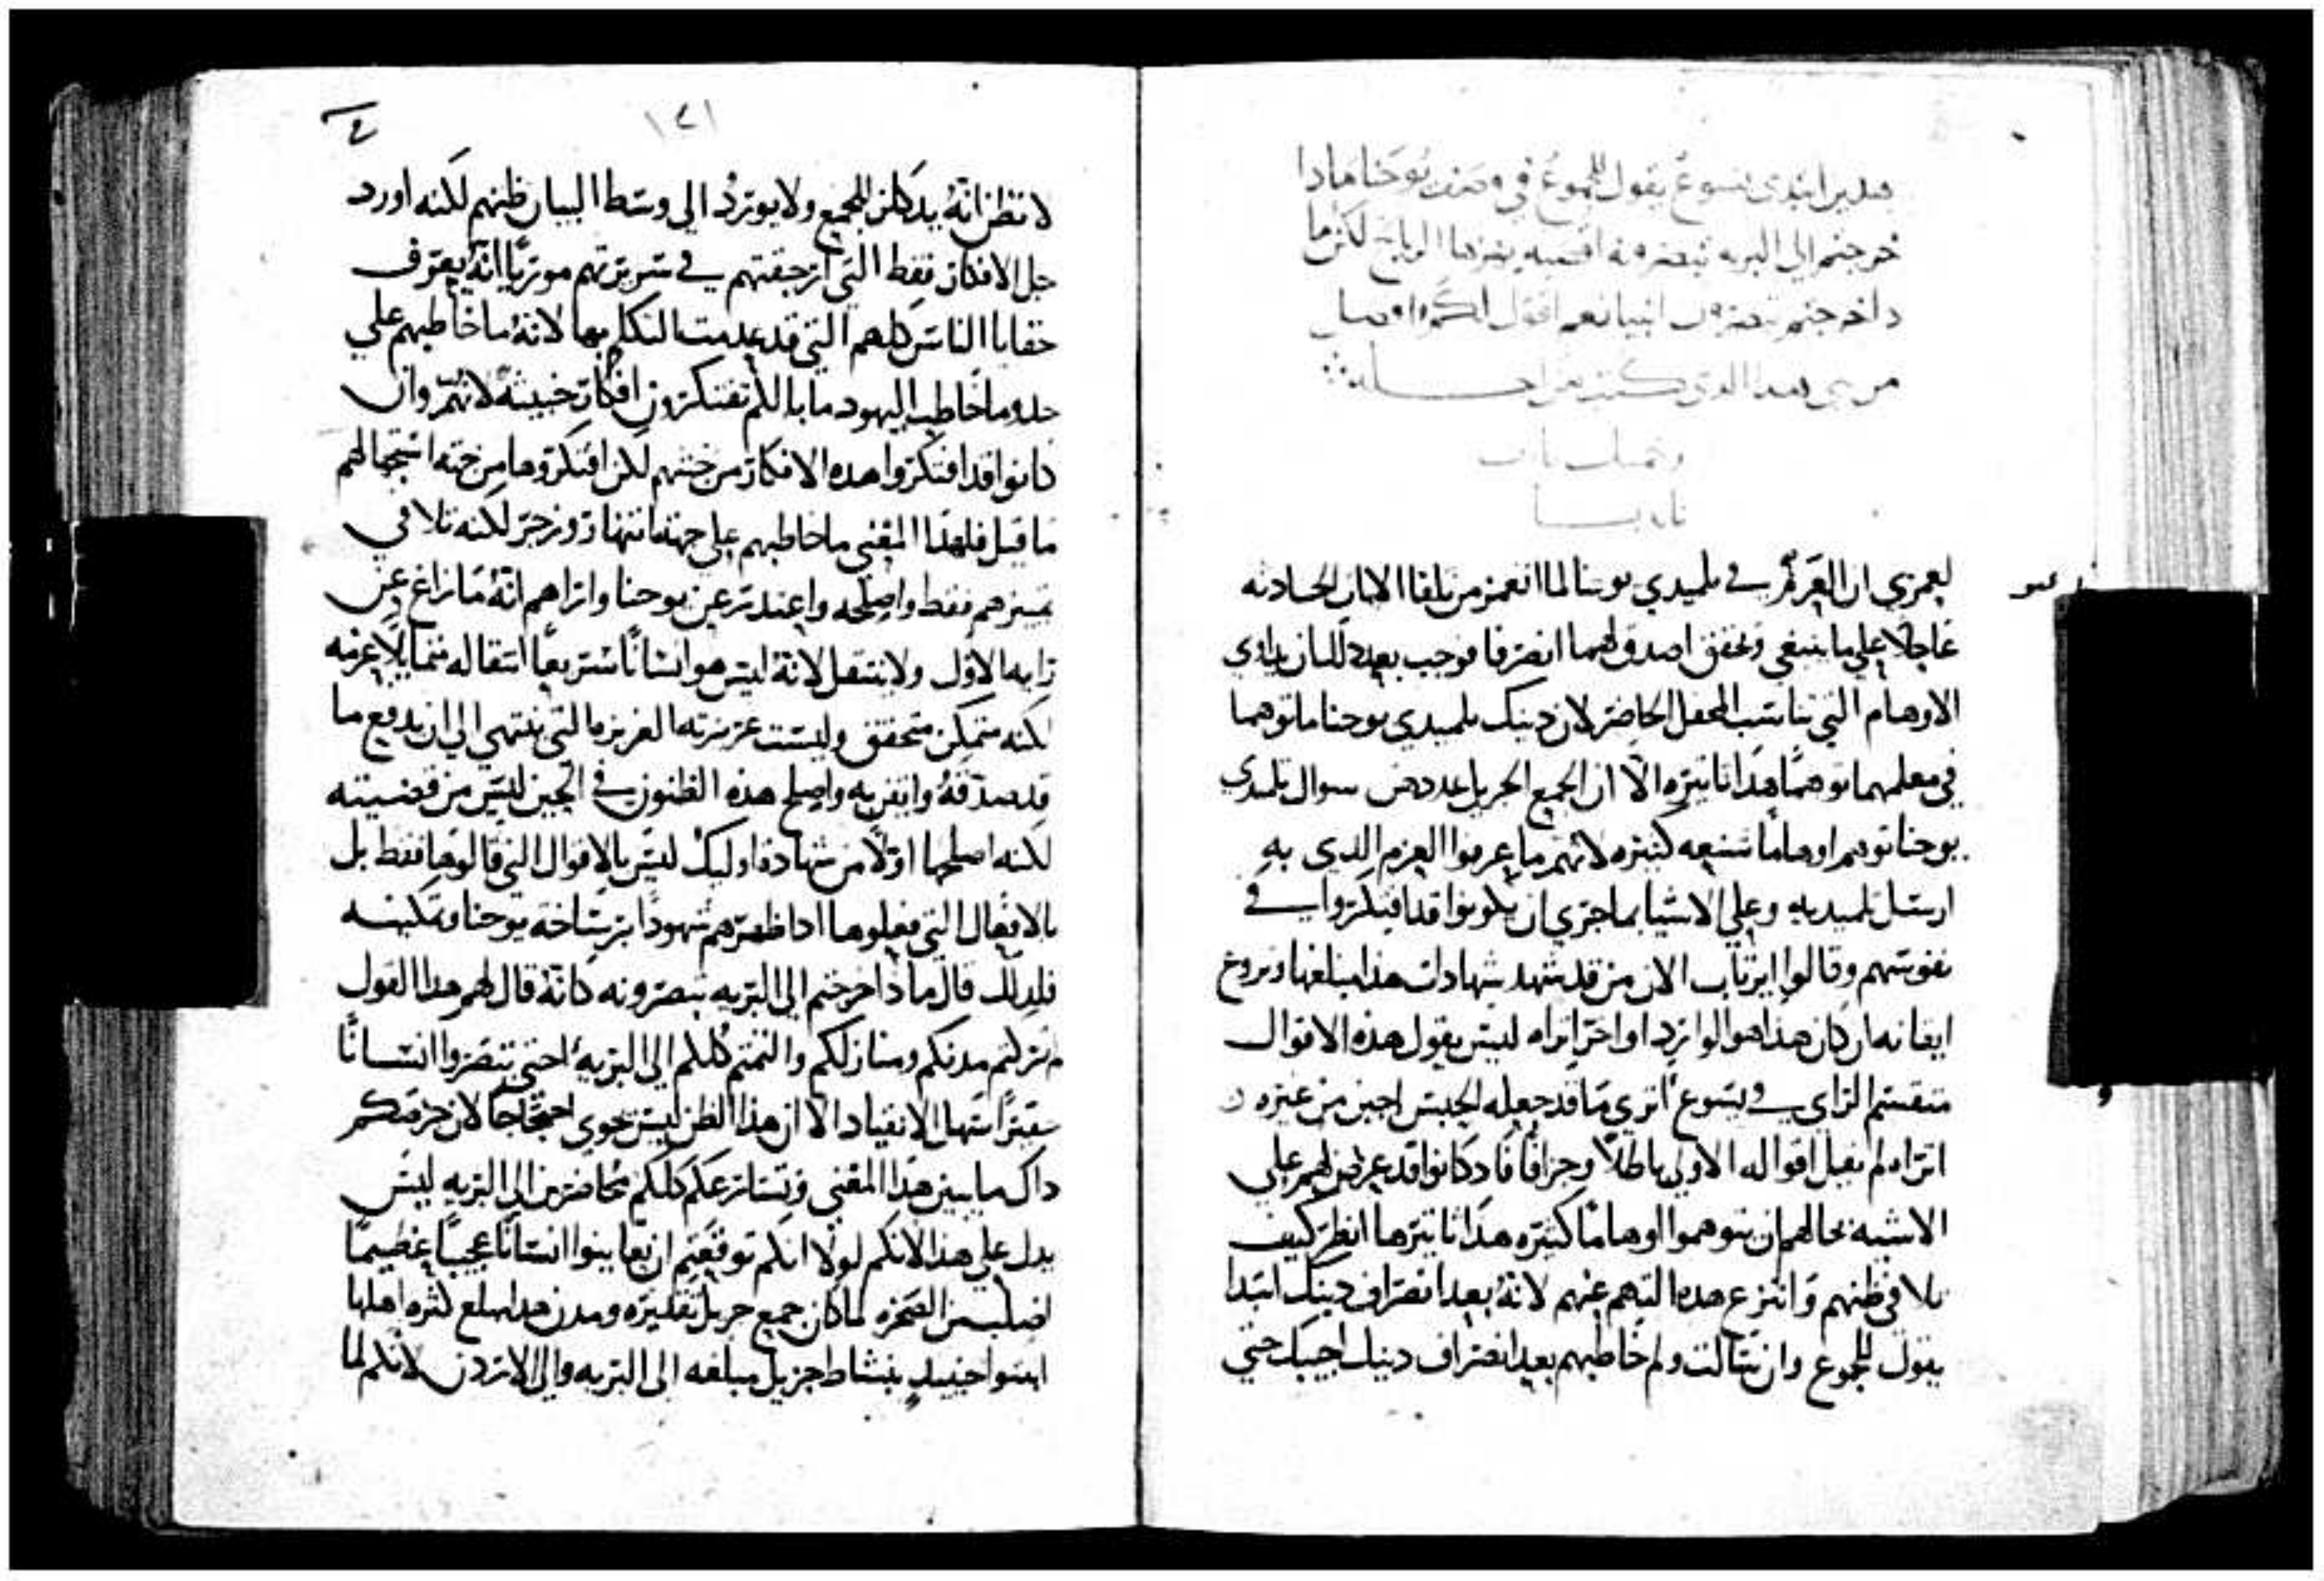 هدين ابتدى يسوع يقول للجموع في وصف يوحنا مادا
خرجتم الي البريه تبصرونه اقصبه يهزها الرياح لكن ما
دا خرجتم تبصرون انبيا نعم اقول لكم وافضل
من نبي هدا الدي كتب من اجله
لعمري ان العزم في تلميدي يوحنا لما انعمز من تلقا الايات الحادثه
عاجلا علي ما ينبغي وتحقق اصدق لهما انصرفا فوجب بعد دلك ان يداوي
الاوهام التي تناسب المحفل الحاضر لان دينك تلميدي يوحنا ما توهما
في معلمهما توهما هدا تاثيره الا ان الجمع الجزيل عدده من سوال تلميدي
يوحنا توهم اوهاما شنيعه كثيره لانهم ما عرفوا العزم الدي به
ارسل تلميديه وعلي الاشيا بما جري ان يكونوا قد افتكروا في
نفوسهم وقالوا ايرتاب الان من قد شهد شهادات هدا مبلغها ويروغ
ايقانه ان كان هدا هو الوارد او اخر اتراه ليس يقول هده الاقوال
منقسم الراي في يسوع اتري ما قد جعله الحبس اجبن من غيره
اتراه لم يقل اقواله الاولي باطلا وجزافا فاد كانوا قد عرض لهم علي
الاشبه بحالهم ان يتوهموا اوهاما كثيره هدا تاثيرها انظر كيف
تلافي ظنهم وانتزع هده التهم عنهم لانه بعد انصراف دينك ابتدا
يقول للجموع وان سالت ولم خاطبهم بعد انصراف دينك اجيبك حتي
١٤١
لا تظن انه يدكل للجمع ولا يورد الي وسط البيان ظنهم لكنه اورد
حل الافكار فقط التي ارجفتهم في سريرتهم موريا انه يعرف
خفايا الناس كلهم التي قد عدمت التكلم بها لانه ما خاطبهم علي
حدو ما خاطب اليهود ما بالكم تفتكرون افكار خبيثه لانهم وان
كانوا قد افتكروا هده الافكار من خبثهم لكن افتكروها من جهة استجهالهم
ما قيل فلهدا المعني ما خاطبهم علي جهة انتهار وزجر لكنه تلافي
تمييزهم فقط واصلحه واعتدر عن يوحنا واراهم انه ما زاغ عن
رايه الاول ولا ينتقل لانه ليس هو انسانا سريعا انتقاله متمايلا عزمه
لكنه متمكن متحقق وليست غريزته الغريزه التي ينتهي الي ان يدفع ما
قد صدقه وايقن به واصلح هده الظنون في الحين ليس من قضيته
لكنه اصلحها اولا من شهادة اوليك ليس بالاقوال التي قالوها فقط بل
بالافعال التي فعلوها ادا ظهرهم شهودا برساخة يوحنا وتمكينه
فلدلك قال مادا خرجتم الي البريه تبصرونه كانه قال لهم هدا القول
لم تركتم مدنكم ومنازلكم والتممتم كلكم الي البريه احتي تبصروا انسانا
حقيرا سهل الانقياد الا ان هدا الظن ليس يحوي احتجاجا لان حرصكم
داك ما يبين هدا المعني وتسارعكم كلكم محاضرين الي البريه ليس
يدل علي هدا لانكم لولا انكم توقعتم ان تعاينوا انسانا عجيبا عظيما
اصلب من الصخره لما كان جمع جزيل تقديره ومدن هدا مبلغ كثرة اهلها
انبثوا حينيد بنشاط جزيل مبلغه الي البريه والي الاردن لانكم لما